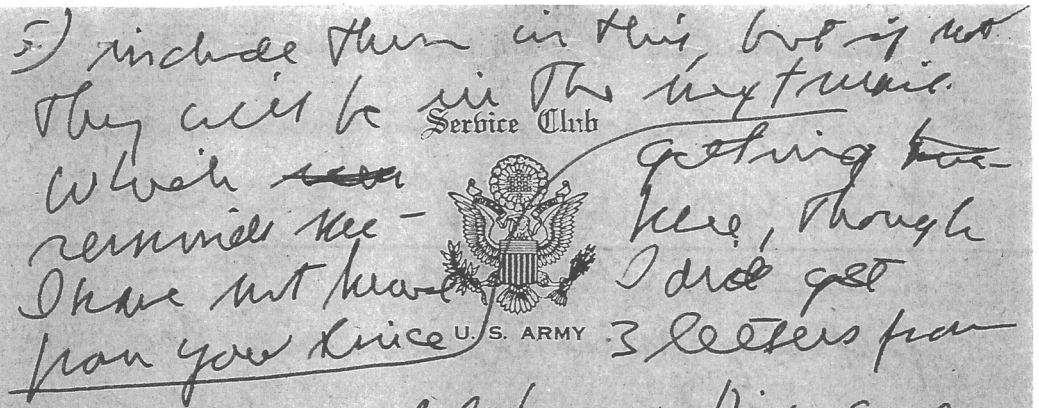 5) include them in this, but if not
they will be in the next mail.
Service Club
Which
reminds me –
I have not heard
from you since
getting
here, though
I did get
3 letters from
U. S. ARMY